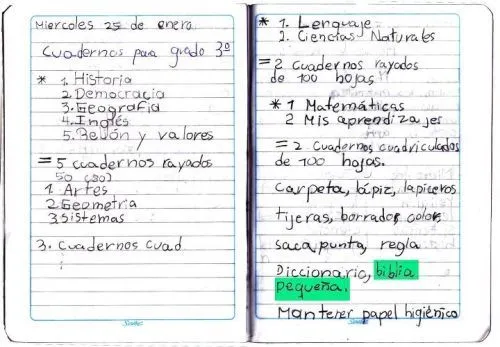 Miercoles 25 de enero
Cuadernos para grado 3º
* 1. Historia
2. Democracia
3. Geografia
4. Inglés
5. Relión y valores
= 5 cuadernos rayados
50 (80)
1 Artes
2 Geometria
3. Sistemas
3. Cuadernos Cuad
Scribe
* 1. Lenguaje
2. Ciencias Naturales
= 2 cuadernos rayados
de 100 hojas
* 1 Matemáticas
2 Mis aprendizajes
= 2 Cuadernos cuadriculados
de 100 hojas.
Carpeta, lápiz, lapiceros
tijeras, borrador, color,
sacapunta, regla
Diccionario, biblia
pequeña.
Mantener papel higiénico
Scribe